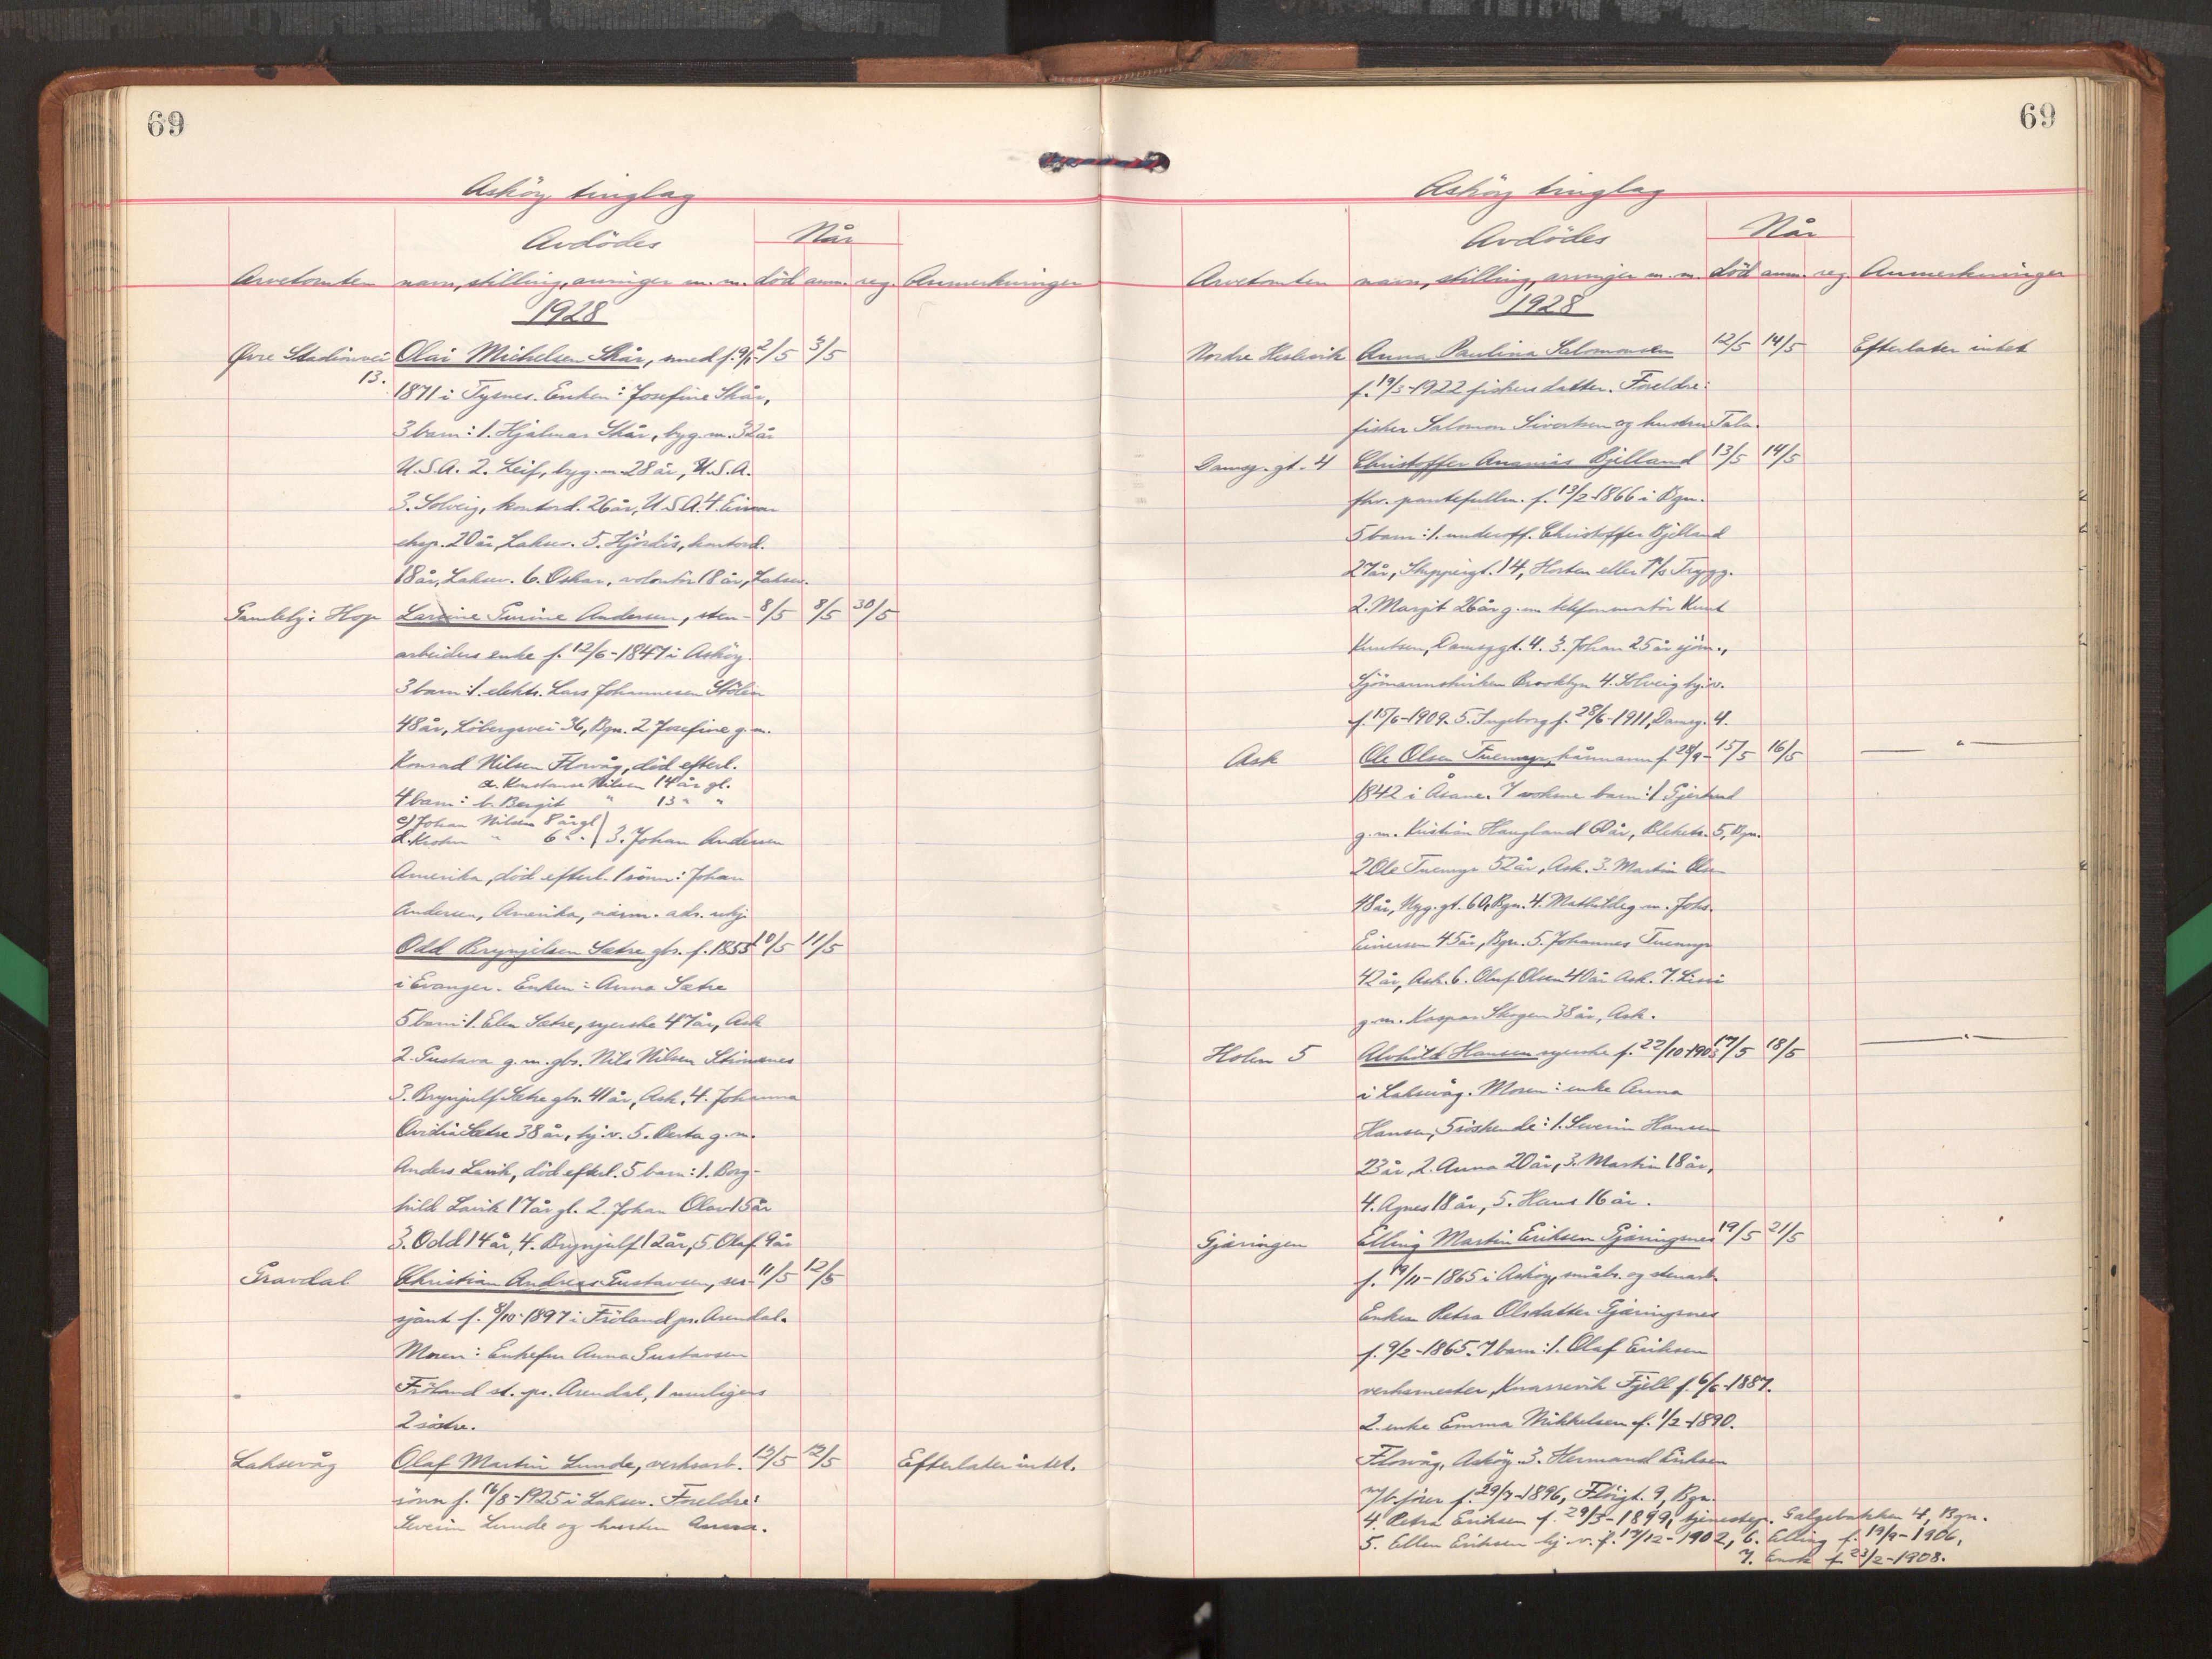 69
Asköy tinglag
Avdödes
Når
Arvetomten navn, stilling, arvinger m.m. död anm. reg. Anmerkninger
1928
Øvre Stadionvei Olai Michelsen Skår, smed f. 9/1- 2/5 3/5
13.
1871 i Tysnes. Enken: Josefine Skår,
3 barn: 1. Hjalmar Skår, byg.m. 32 år
U.S.A. 2. Leif, byg.m. 28 år, U.S.A.
3. Solveig, kontord. 26 år, U.S.A. 4. Einar
eksp. 20 år, Laksev. 5. Hjördis, kontord.
18 år, Laksev. 6. Oskar, volontör 18 år, Laksev.
Gamlehj. Hop Larsine Andersen, sten- 8/5 8/5 30/5
arbeiders enke f. 12/6-1847 i Asköy.
3 barn: 1. elektr. Lars Johannesen Stölen
48 år, Löbergsvei 36, Bgn. 2 Josefine g.m.
Konrad Nilsen Florvåg, död efterl.
a. Konstanse Nilsen 14 år gl.
4 barn: b. Bergit " 13 " "
c) Johan Nilsen 8 år gl
d. Krohn " 6 " . 3. Johan Andersen
Amerika, död efterl. 1 sönn: Johan
Andersen, Amerika, nærm. adr. ukj.
Odd Brynjelsen Sætre gbr. f. 1855 10/5 11/5
i Evanger. Enken: Anna Sætre
5 barn: 1. Elen Sætre, syerske 47 år, Ask
2. Gustava g.m. gbr. Nils Nilsen Strömsnes
3. Brynjulf Sætre gbr. 41 år, Ask, 4. Johanna
Ovidia Sætre 38 år, hj.v. 5. Berta g.m.
Anders Lavik, död efterl. 5 barn: 1. Borg-
hild Lavik 17 år gl. 2. Johan Olav 15 år
3. Odd 14 år, 4. Brynjulf 12 år, 5 Olaf 9 år
Gravdal Christian Andreas Gustavsen, ser- 11/5 12/5
sjant f. 8/10-1897 i Fröland pr. Arendal.
Moren: Enkefru Anna Gustavsen
Fröland st. pr. Arendal, 1 muligens
2 söstre.
Laksevåg Olaf Martin Lunde, verksarb. 12/5 12/5 Efterlater intet.
sönn f. 16/8-1925 i Laksev. Foreldre:
Severin Lunde og hustru Anna.
69
Asköy tinglag
Avdödes
Når
Arvetomten navn, stilling, arvinger m.m. död anm. reg. Anmerkninger
1928
Nordre Anna Paulina Salomonsen 12/5 14/5 Efterlater intet
f. 19/3-1922 fiskers datter. Foreldre:
fisker Salomon Sivertsen og hustru Tala.
Damsg.gt. 4 Christoffer Ananias Bjelland 13/5 14/5
fhv. pantefullm. f. 13/2-1866 i Bgn.
5 barn: 1. underoff. Christoffer Bjelland
27 år, Skippergt. 14, Horten eller P/s Trygg.
2. Margit 26 år g.m. telefonmontör Knut
Knutsen, Damsggt. 4. 3. Johan 25 år sjöm.,
Sjömannskirken Brooklyn 4. Solveig hj.v.
f. 15/6-1909. 5. Ingeborg f. 28/6-1911, Damsg. 4.
Ask Ole Olsen Tuemyr, kårmann f 28/9- 15/5 16/5 — " —
1842 i Åsane. 7 voksne barn: 1 Gjertrud
g.m. Kristian Haugland 60 år, Blekebr. 5, Bgn.
2 Ole Tuemyr 52 år, Ask. 3. Martin Olsen
48 år, Nyg.gt. 60, Bgn. 4. Mathilde g.m. Johs.
Einersen 45 år, Bgn. 5. Johannes Tuemyr
42 år, Ask. 6. Oluf Olsen 40 år Ask. 7. Lissi
g.m. Kaspar Skogen 38 år, Ask.
Holen 5 Alvhild Hansen syerske f. 22/10-1903 17/5 18/5 — " —
i Laksevåg. Moren: enke Anna
Hansen, 5 söskende: 1. Severin Hansen
23 år, 2. Anna 20 år, 3. Martin 18 år,
4. Agnes 18 år, 5. Hans 16 år.
Gjæringen Elling Martin Eriksen Gjæringsnes 19/5 21/5
f. 19/11-1865 i Asköy, småbr. og stenarb.
Enken Petra Olsdatter Gjæringsnes
f. 9/2-1865. 7 barn: 1. Olaf Eriksen
verksmester, Knarrevik Fjell f. 6/6-1887.
2. enke Emma Mikkelsen f. 1/2-1890.
Florvåg, Asköy. 3. Hermand Eriksen
m/b. förer f. 29/7-1896, Flöigt. 9, Bgn.
4. Petra Eriksen f. 29/3-1899, tjenestep. Galgebakken 4, Bgn.
5. Ellen Eriksen hj.v. f. 17/12-1902, 6. Elling f. 19/9-1906,
7. f. 23/2-1908.